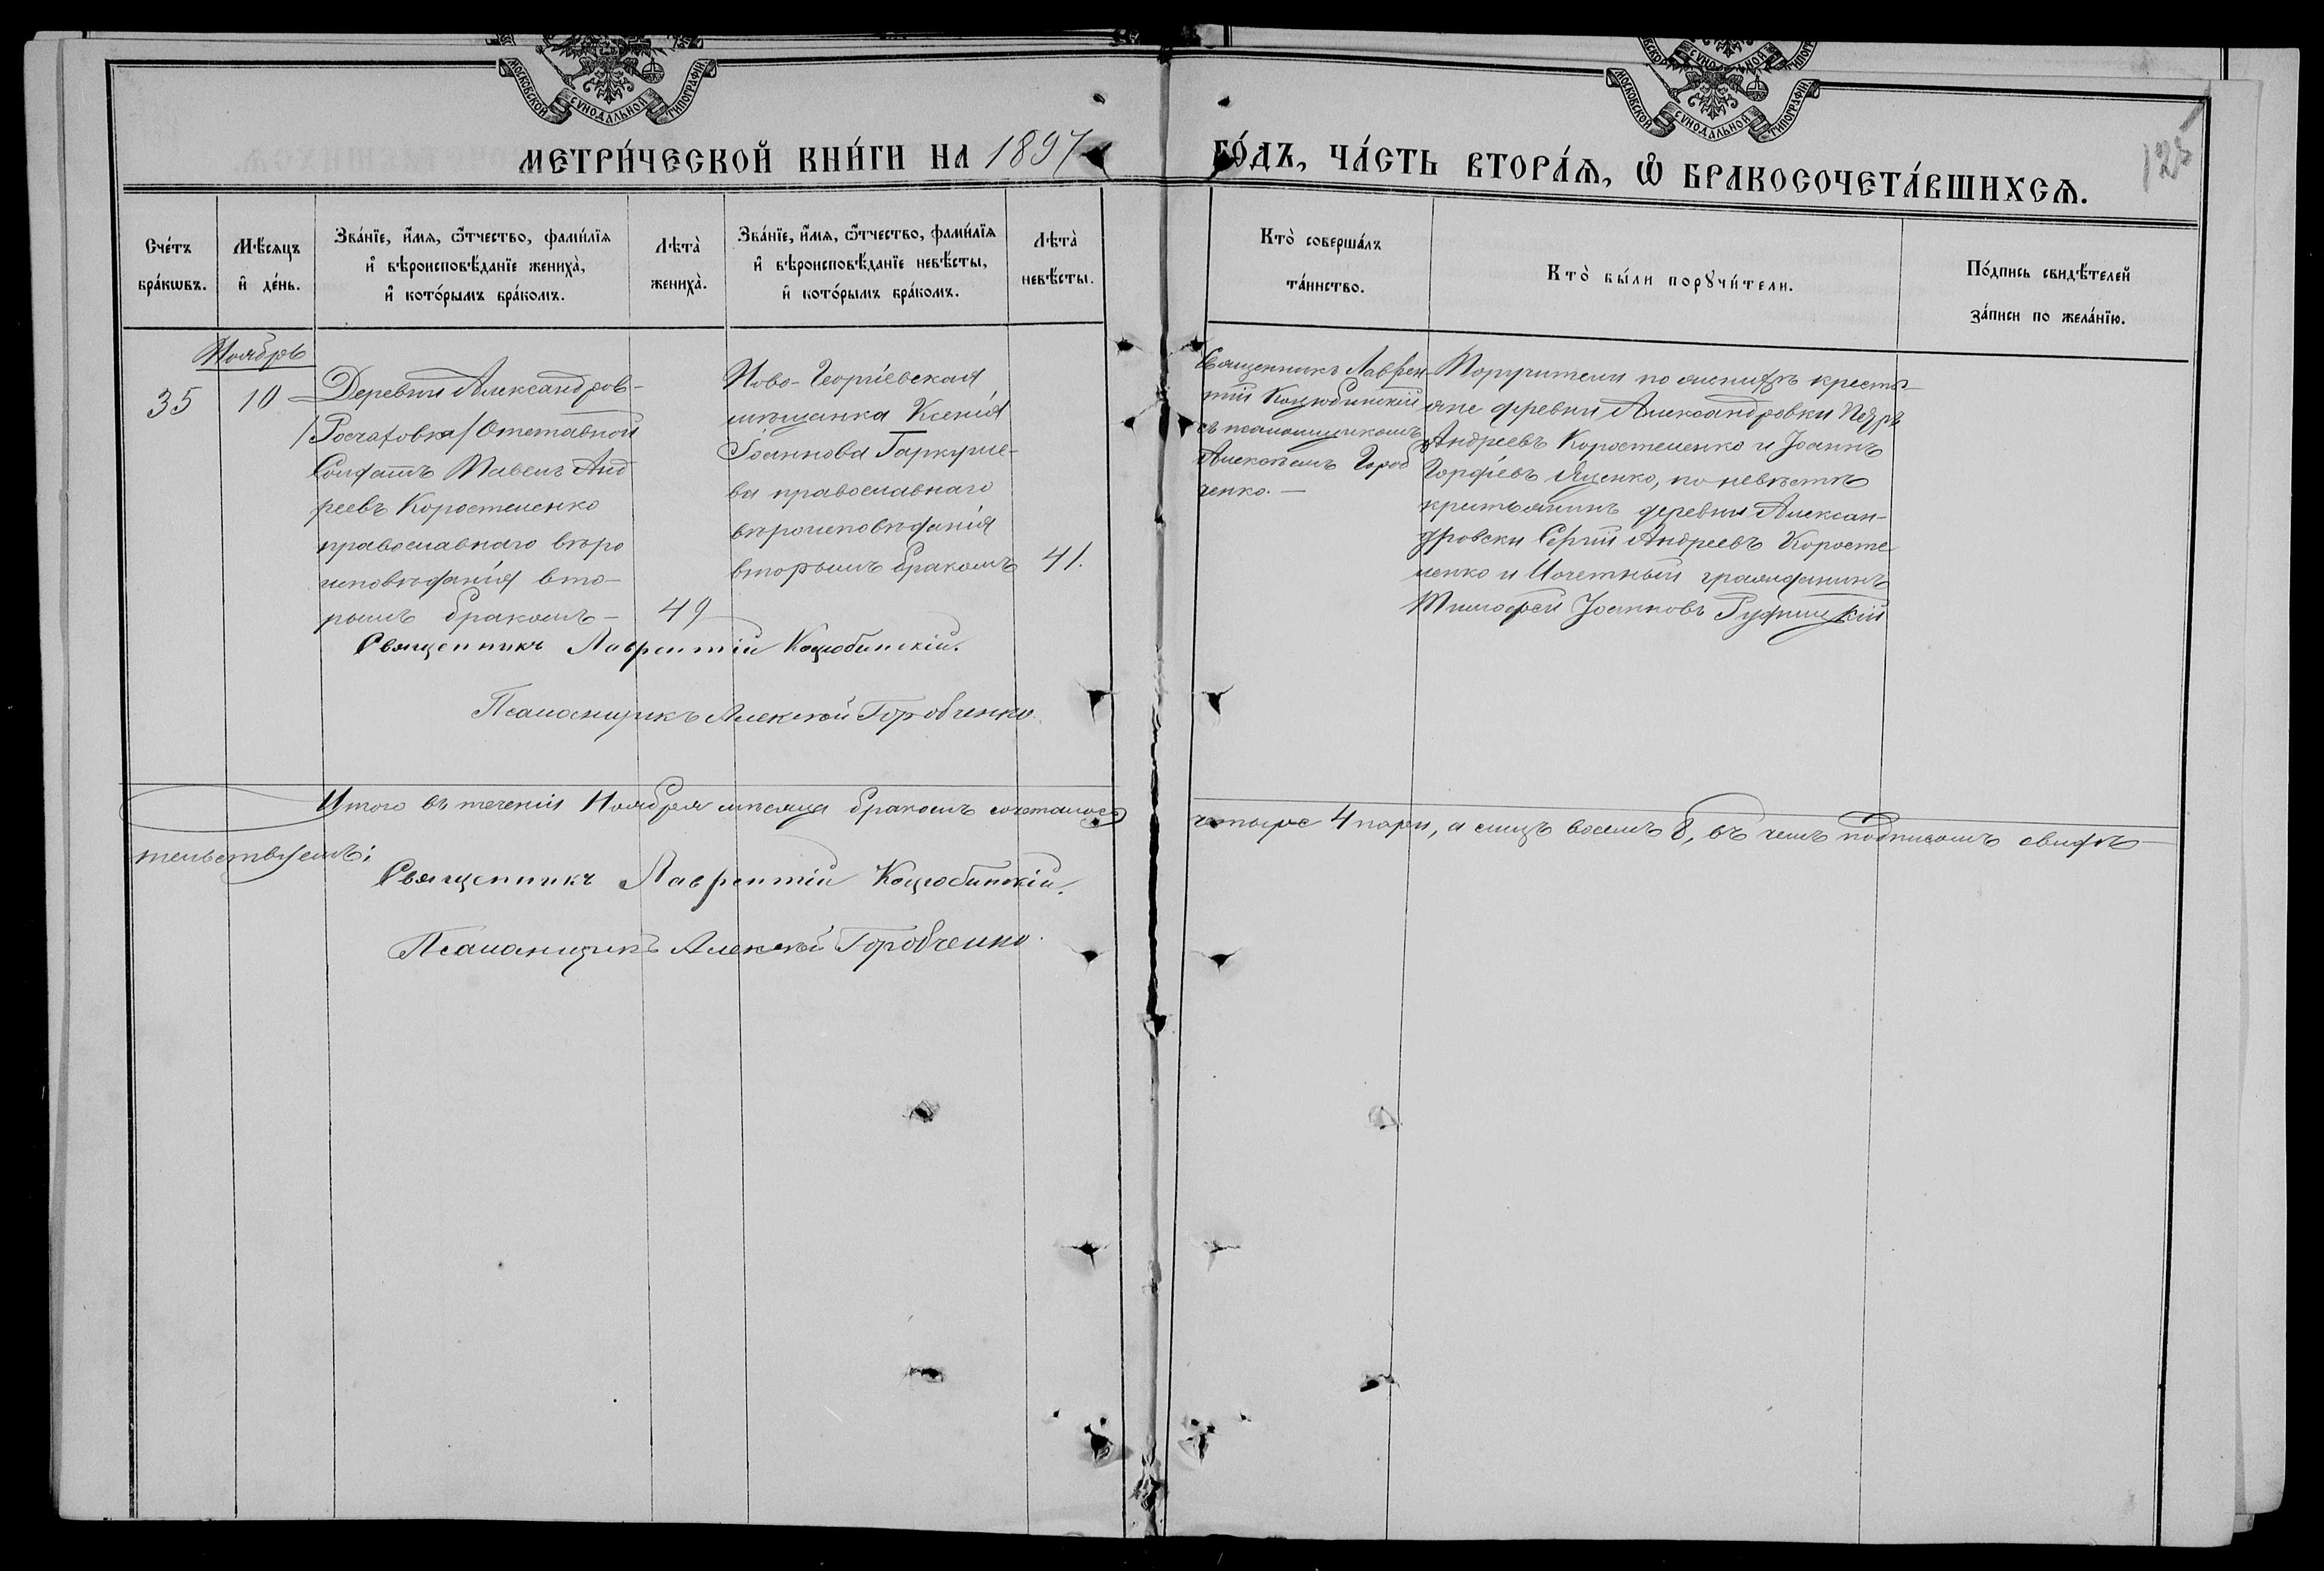 МОСКОВСКОЙ СУНОДАЛЬНОЙ ТИПОГРАФІИ
МОСКОВСКОЙ СУНОДАЛЬНОЙ ТИПОГРАФІИ
МЕТРИ́ЧЕСКОЙ КНИ́ГИ НА 1897
ГО́ДЪ, ЧА́СТЬ ВТОРА́Ѧ, Ѽ БРАКОСОЧЕТА́ВШИХСѦ.
125
Сче́тъ бра́кѡвъ.
Мѣ́сяцъ и҆ де́нь.
Зва́нїе, и҆́мѧ, ѻ҆́тчество, фами́лїѧ и҆ вѣроисповѣ́данїе жениха̀, и҆ кото́рымъ бра́комъ.
Лѣта̀ жениха̀.
Зва́нїе, и҆́мѧ, ѻ҆́тчество, фами́лїѧ и҆ вѣроисповѣ́данїе невѣ́сты, и҆ кото́рымъ бра́комъ.
Лѣта̀ невѣ́сты.
Кто̀ соверша́лъ та́инство.
Кто̀ бы́ли порꙋчи́тели.
По́дпись свидѣ́телей за́писи по жела́нїю.
Ноябрь
35
10
Деревни Александров-
Отставной
Солдатъ Павелъ Анд
реевъ Коростеленко
православнаго вѣро
исповѣданія вто-
рымъ бракомъ-
49
Ново-Георгіевская
мѣщанка Ксенія
Іоаннова Гаркуше-
ва православнаго
вѣроисповѣданія
вторымъ бракомъ
41.
Священникъ Лаврен-
тій Коцюбинскій
съ псаломщикомъ
Алексѣемъ Гороб
ченко.-
Поручители по женихѣ кресть-
яне деревни Александровки Петръ
Андреевъ Коростеленко и Іоаннъ
Яценко, по невѣстѣ
крестьянинъ деревни Алексан-
дровски Сергій Андреевъ Коросте
ленко и Почетный гражданинъ
Тимофей Іоанновъ
Священникъ Лаврентій Коцюбинскій.
Псаломщикъ Алексѣй Горобченко.
Итого въ теченіи Ноября мѣсяца бракомъ сочеталось
четыре 4 пары, а лицъ восемъ 8, въ чемъ подписомъ свидѣ-
тельствуемъ:
Священникъ Лаврентій Коцюбинскій.
Псаломщикъ Алексѣй Горобченко.